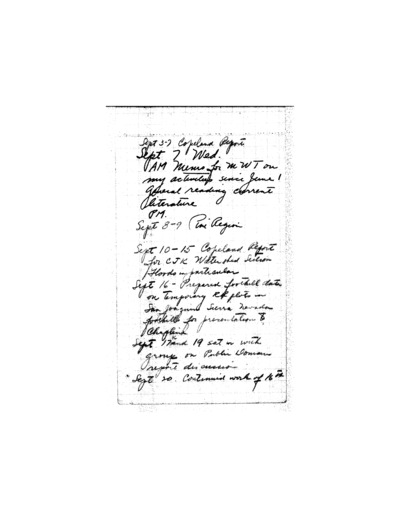 Sept 3-7 Copeland Report
Sept 7 Wed.
AM Memo for MWT on
my activities since June 1
General reading current
literature
P.M.
Sept 8-9 Pine Region
Sept 10-15 Copeland Report
for CJK Watershed Section
Floods in particular
Sept 16 - Prepared foothill data
on temporary plots in
San Joaquin Sierra Nevada
foothills for presentation to
Sept 17 and 19 sat in with
group on Public Domain
report discussion
Sept 20. Continued work of 16th